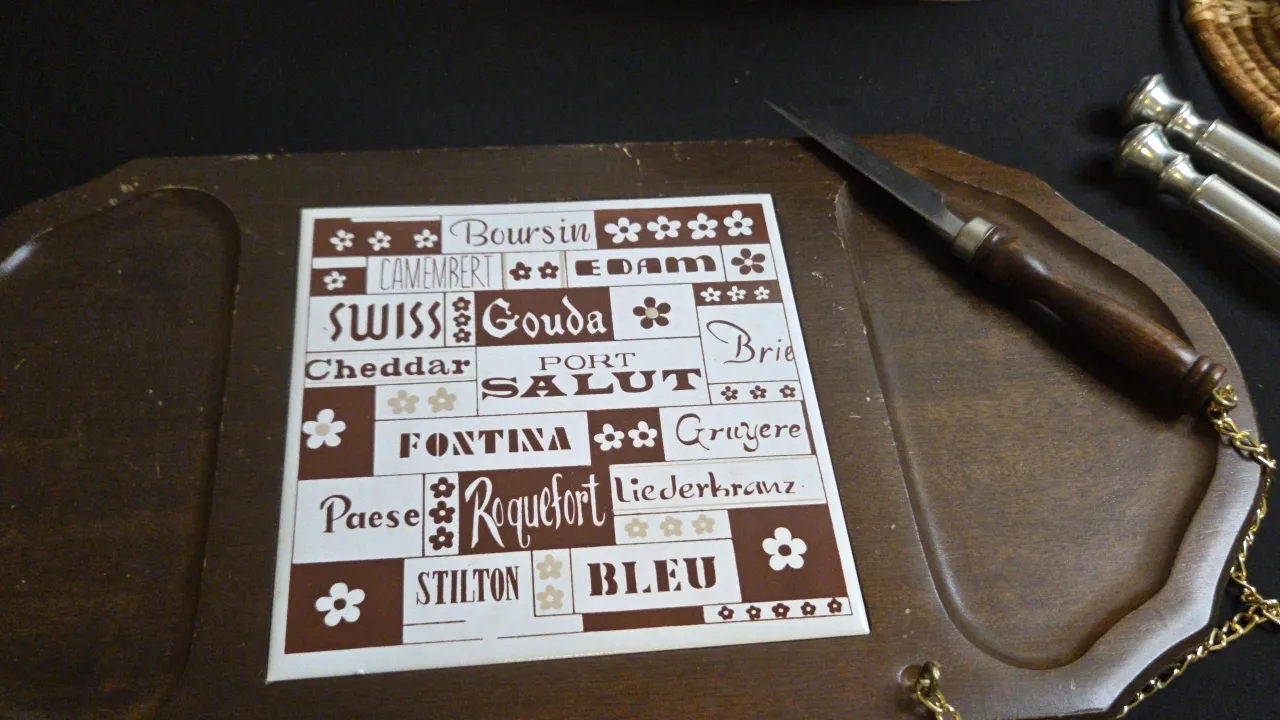 Boursin
CAMEMBERT
EDAM
SWISS
Gouda
Brie
Cheddar
PORT
SALUT
FONTINA
Gruyere
Paese
Roquefort
Liederkranz
STILTON
BLEU